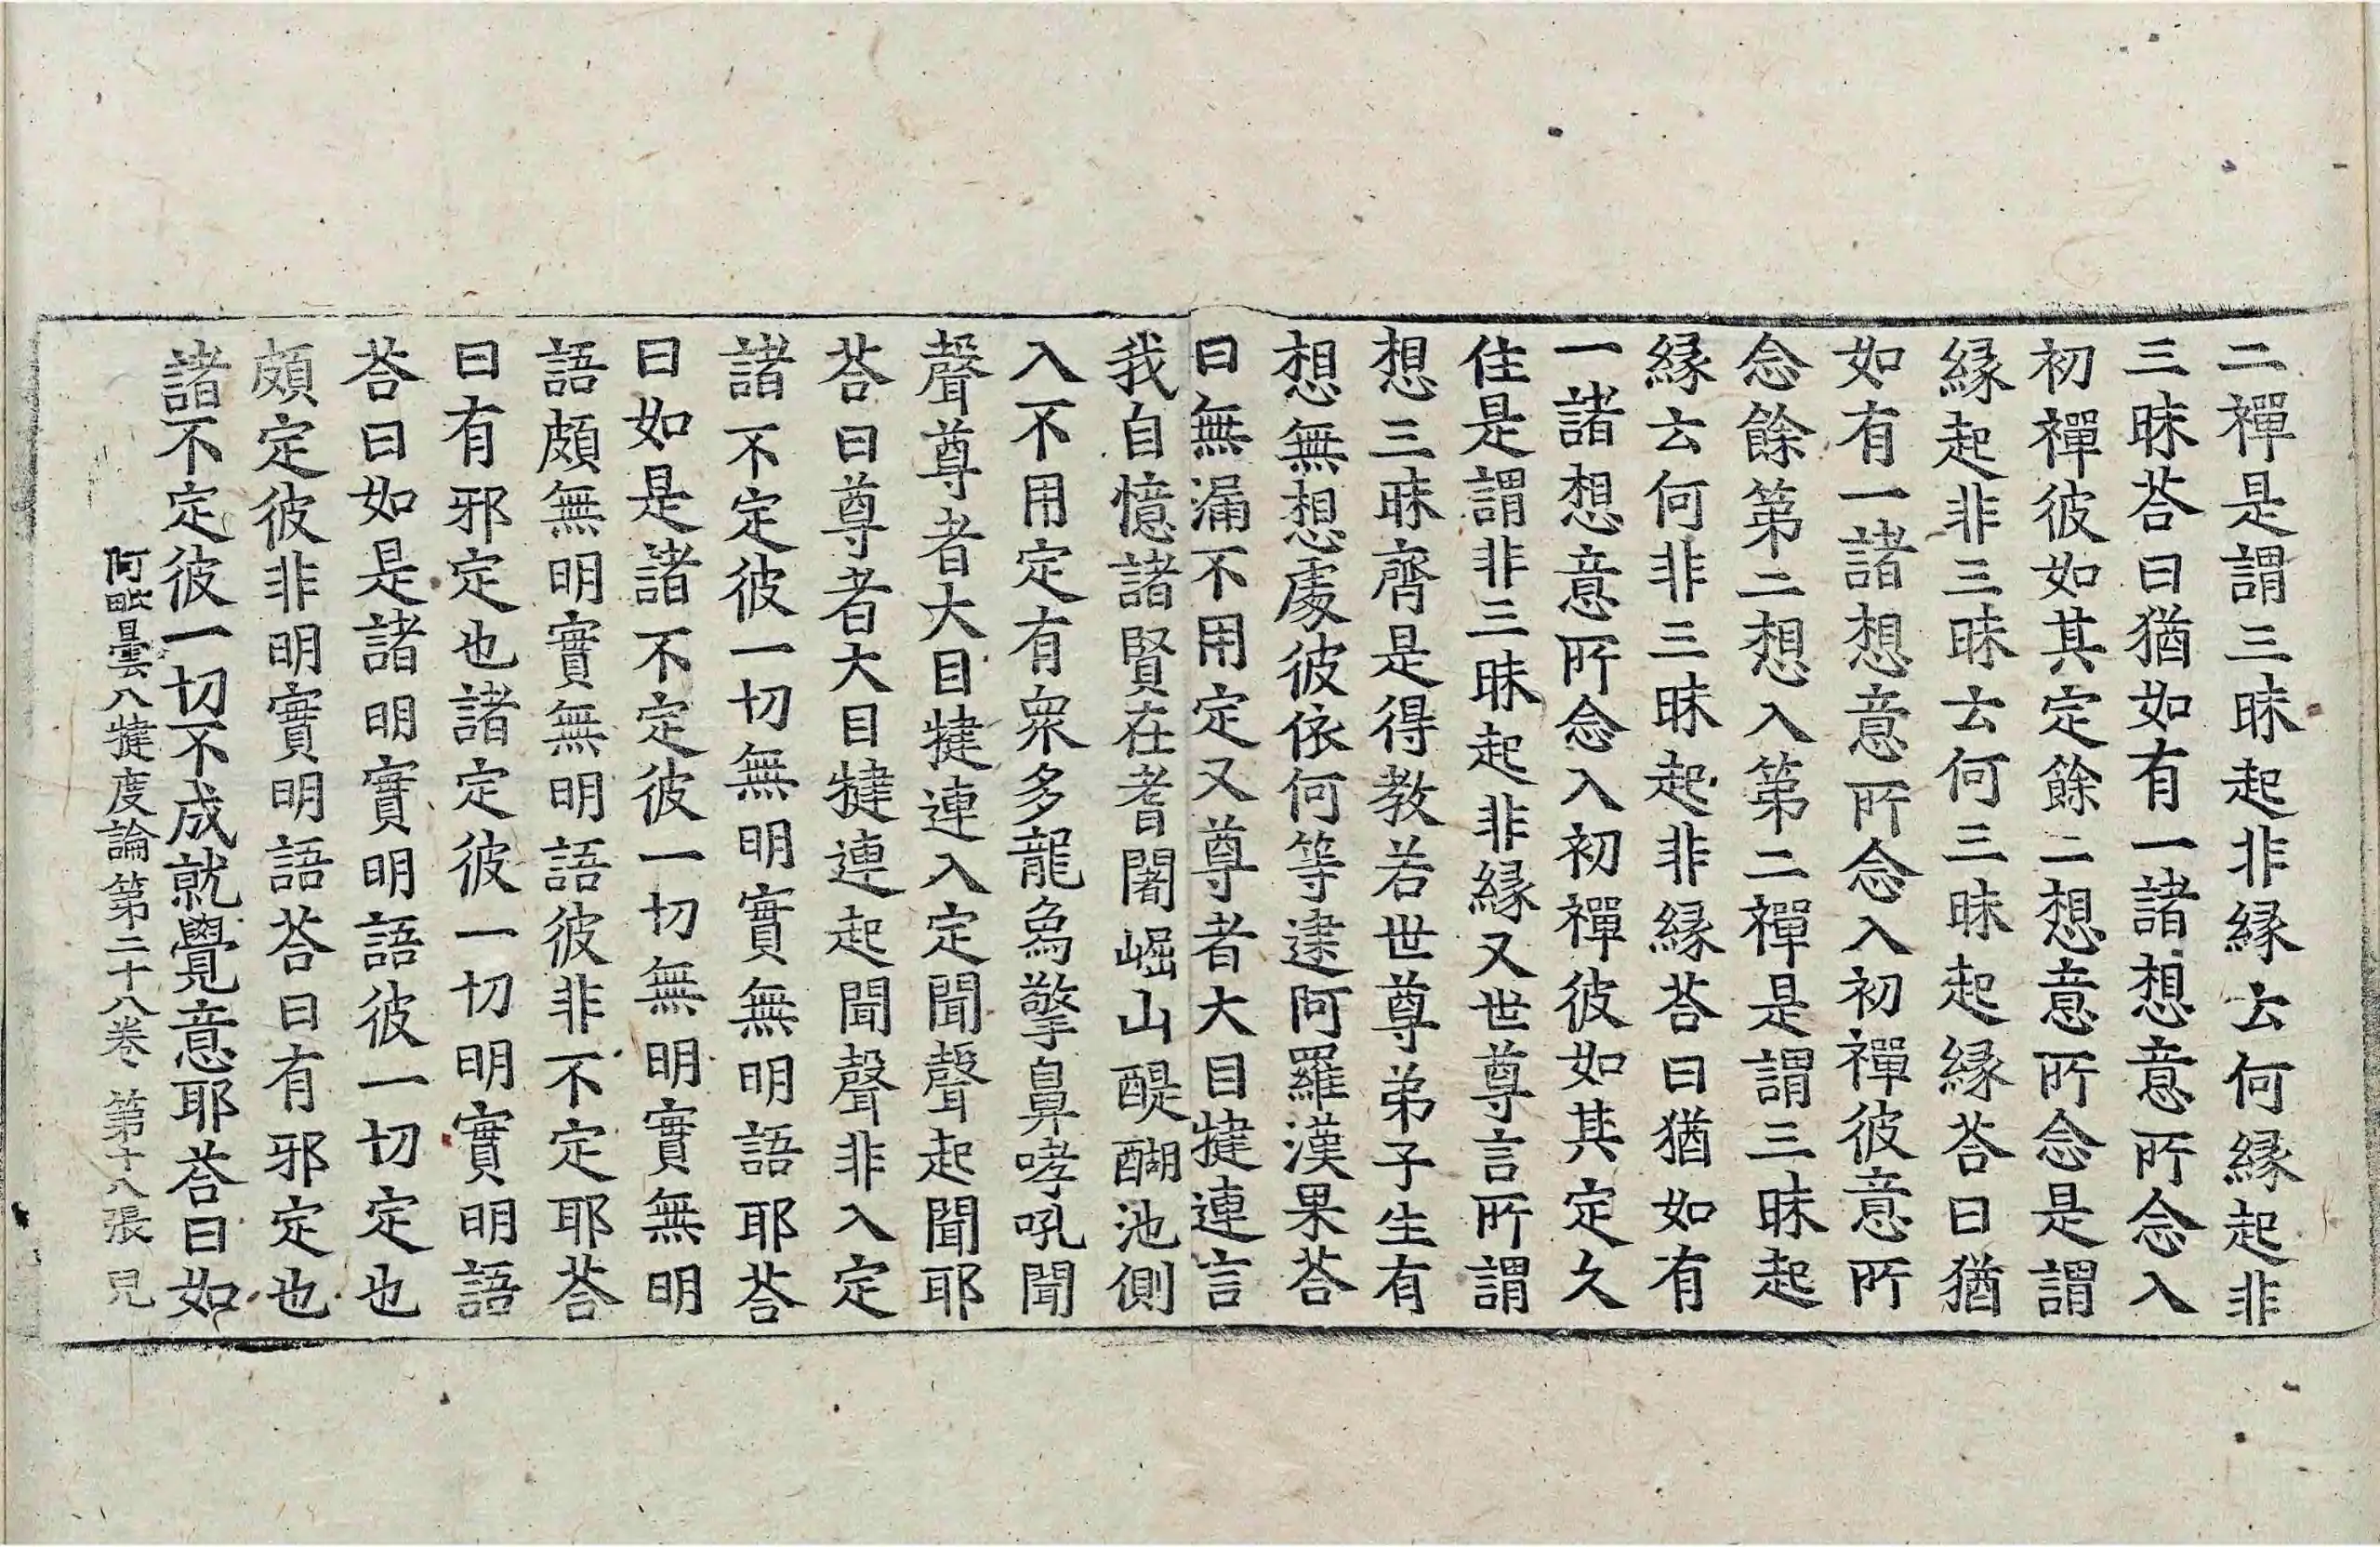 二禪是謂三昧起非縁云何縁起非
三昧荅曰猶如有一諸想意所念入
初禪彼如其定餘二想意所念是謂
縁起非三昧云何三昧起縁荅曰猶
如有一諸想意所念入初禪彼意所
念餘第二想入第二禪是謂三昧起
縁云何非三昧起非縁荅曰猶如有
一諸想意所念入初禪彼如其定久
住是謂非三昧起非縁又世尊言所謂
想三昧齊是得教若世尊弟子生有
想無想處彼依何等逮阿羅漢果荅
曰無漏不用定又尊者大目揵連言
我自憶諸賢在耆闍崛山醍醐池側
入不用定有衆多龍象擎鼻哮吼聞
聲尊者大目揵連入定聞聲起聞耶
荅曰尊者大目揵連起聞聲非入定
諸不定彼一切無明實無明語耶荅
曰如是諸不定彼一切無明實無明
語頗無明實無明語彼非不定耶荅
曰有邪定也諸定彼一切明實明語
荅曰如是諸明實明語彼一切定也
頗定彼非明實明語荅曰有邪定也
諸不定彼一切不成就覺意耶荅曰如
阿毗曇八揵度論第二十八卷 第十八張 皃